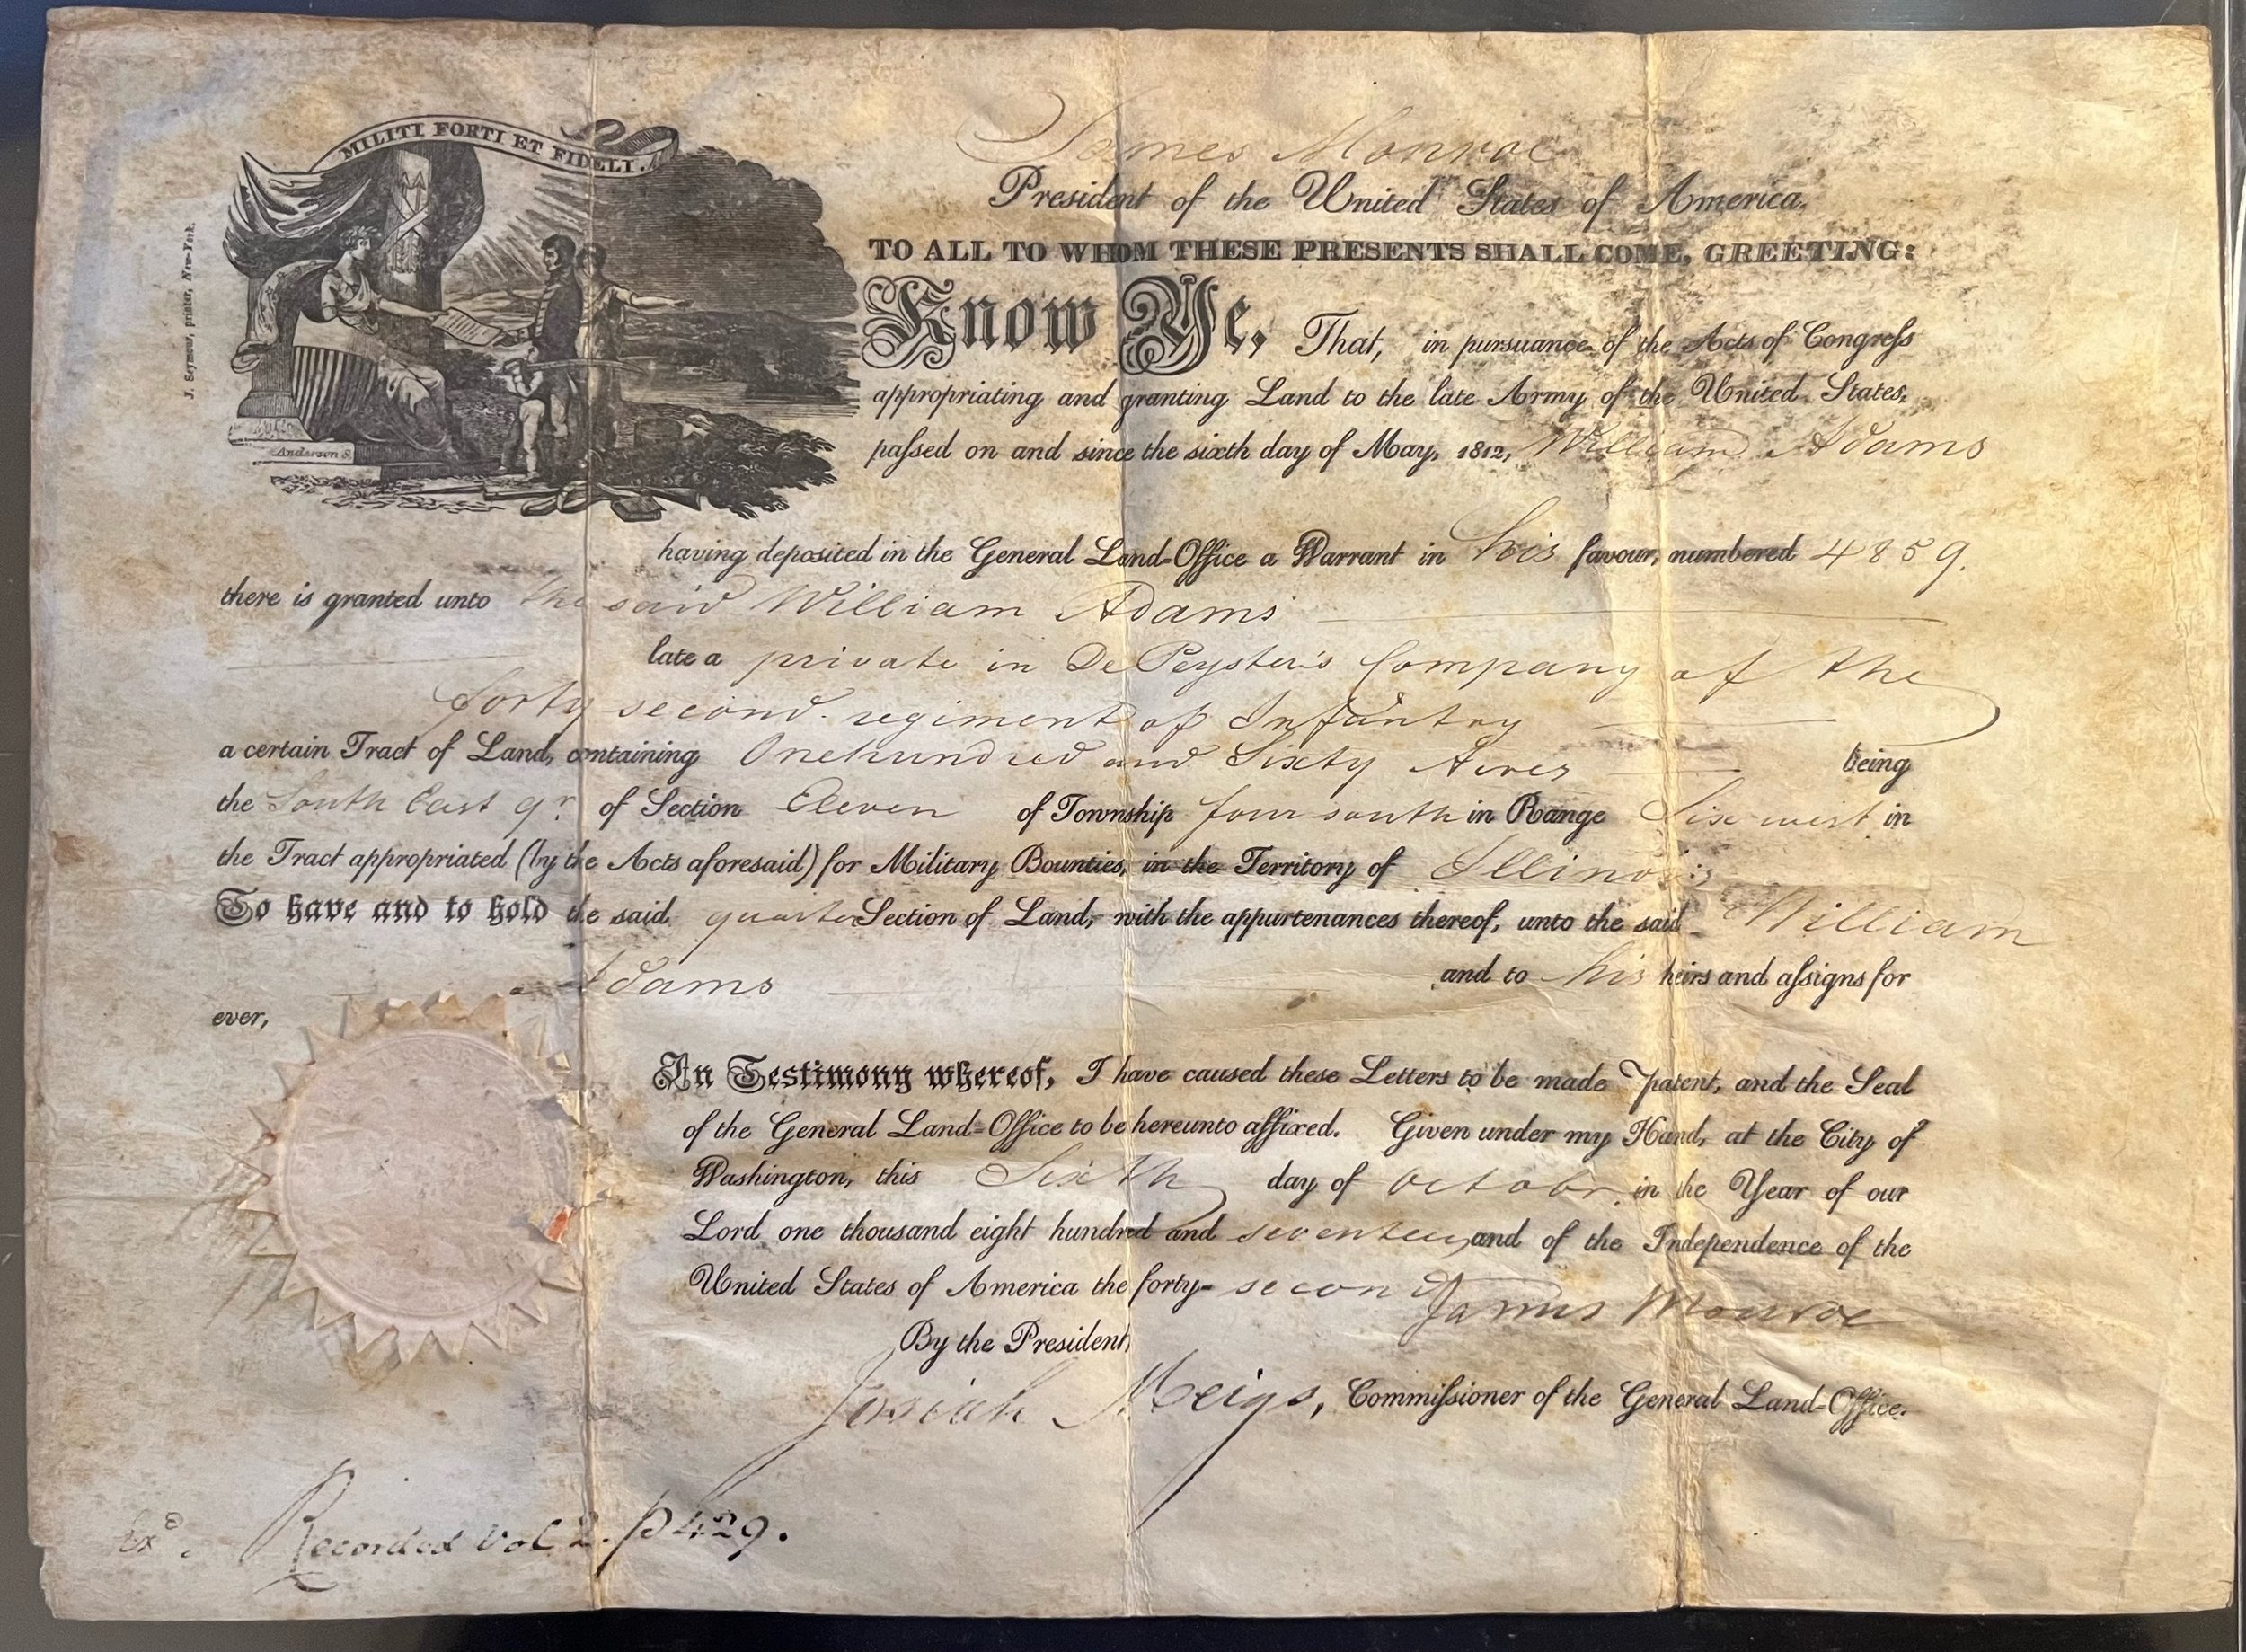 MILITI FORTI ET FIDELI.
J. Seymour, printer, New-York.
Anderson S.
James Monroe
President of the United States of America,
TO ALL TO WHOM THESE PRESENTS SHALL COME, GREETING:
Know Ye, That, in pursuance of the Acts of Congreſs
appropriating and granting Land to the late Army of the United States,
paſsed on and since the sixth day of May, 1812, William Adams
having deposited in the General Land-Office a Warrant in his favour, numbered 4859.
there is granted unto the said William Adams
late a private in De Peyster's Company of the
forty second regiment of Infantry
a certain Tract of Land, containing One hundred and Sixty Acres being
the South East qr. of Section Eleven of Township four south in Range Six west in
the Tract appropriated (by the Acts aforesaid) for Military Bounties, in the Territory of Illinois
To have and to hold the said quarter Section of Land, with the appurtenances thereof, unto the said William
Adams and to his heirs and aſsigns for
ever,
In Testimony whereof, I have caused these Letters to be made Patent, and the Seal
of the General Land-Office to be hereunto affixed. Given under my Hand, at the City of
Washington, this Sixth day of Octobr in the Year of our
Lord one thousand eight hundred and seventeen, and of the Independence of the
United States of America the forty-second
James Monroe
By the President,
Josiah Meigs, Commiſsioner of the General Land-Office.
Exd. Recorded Vol 2. p 429.